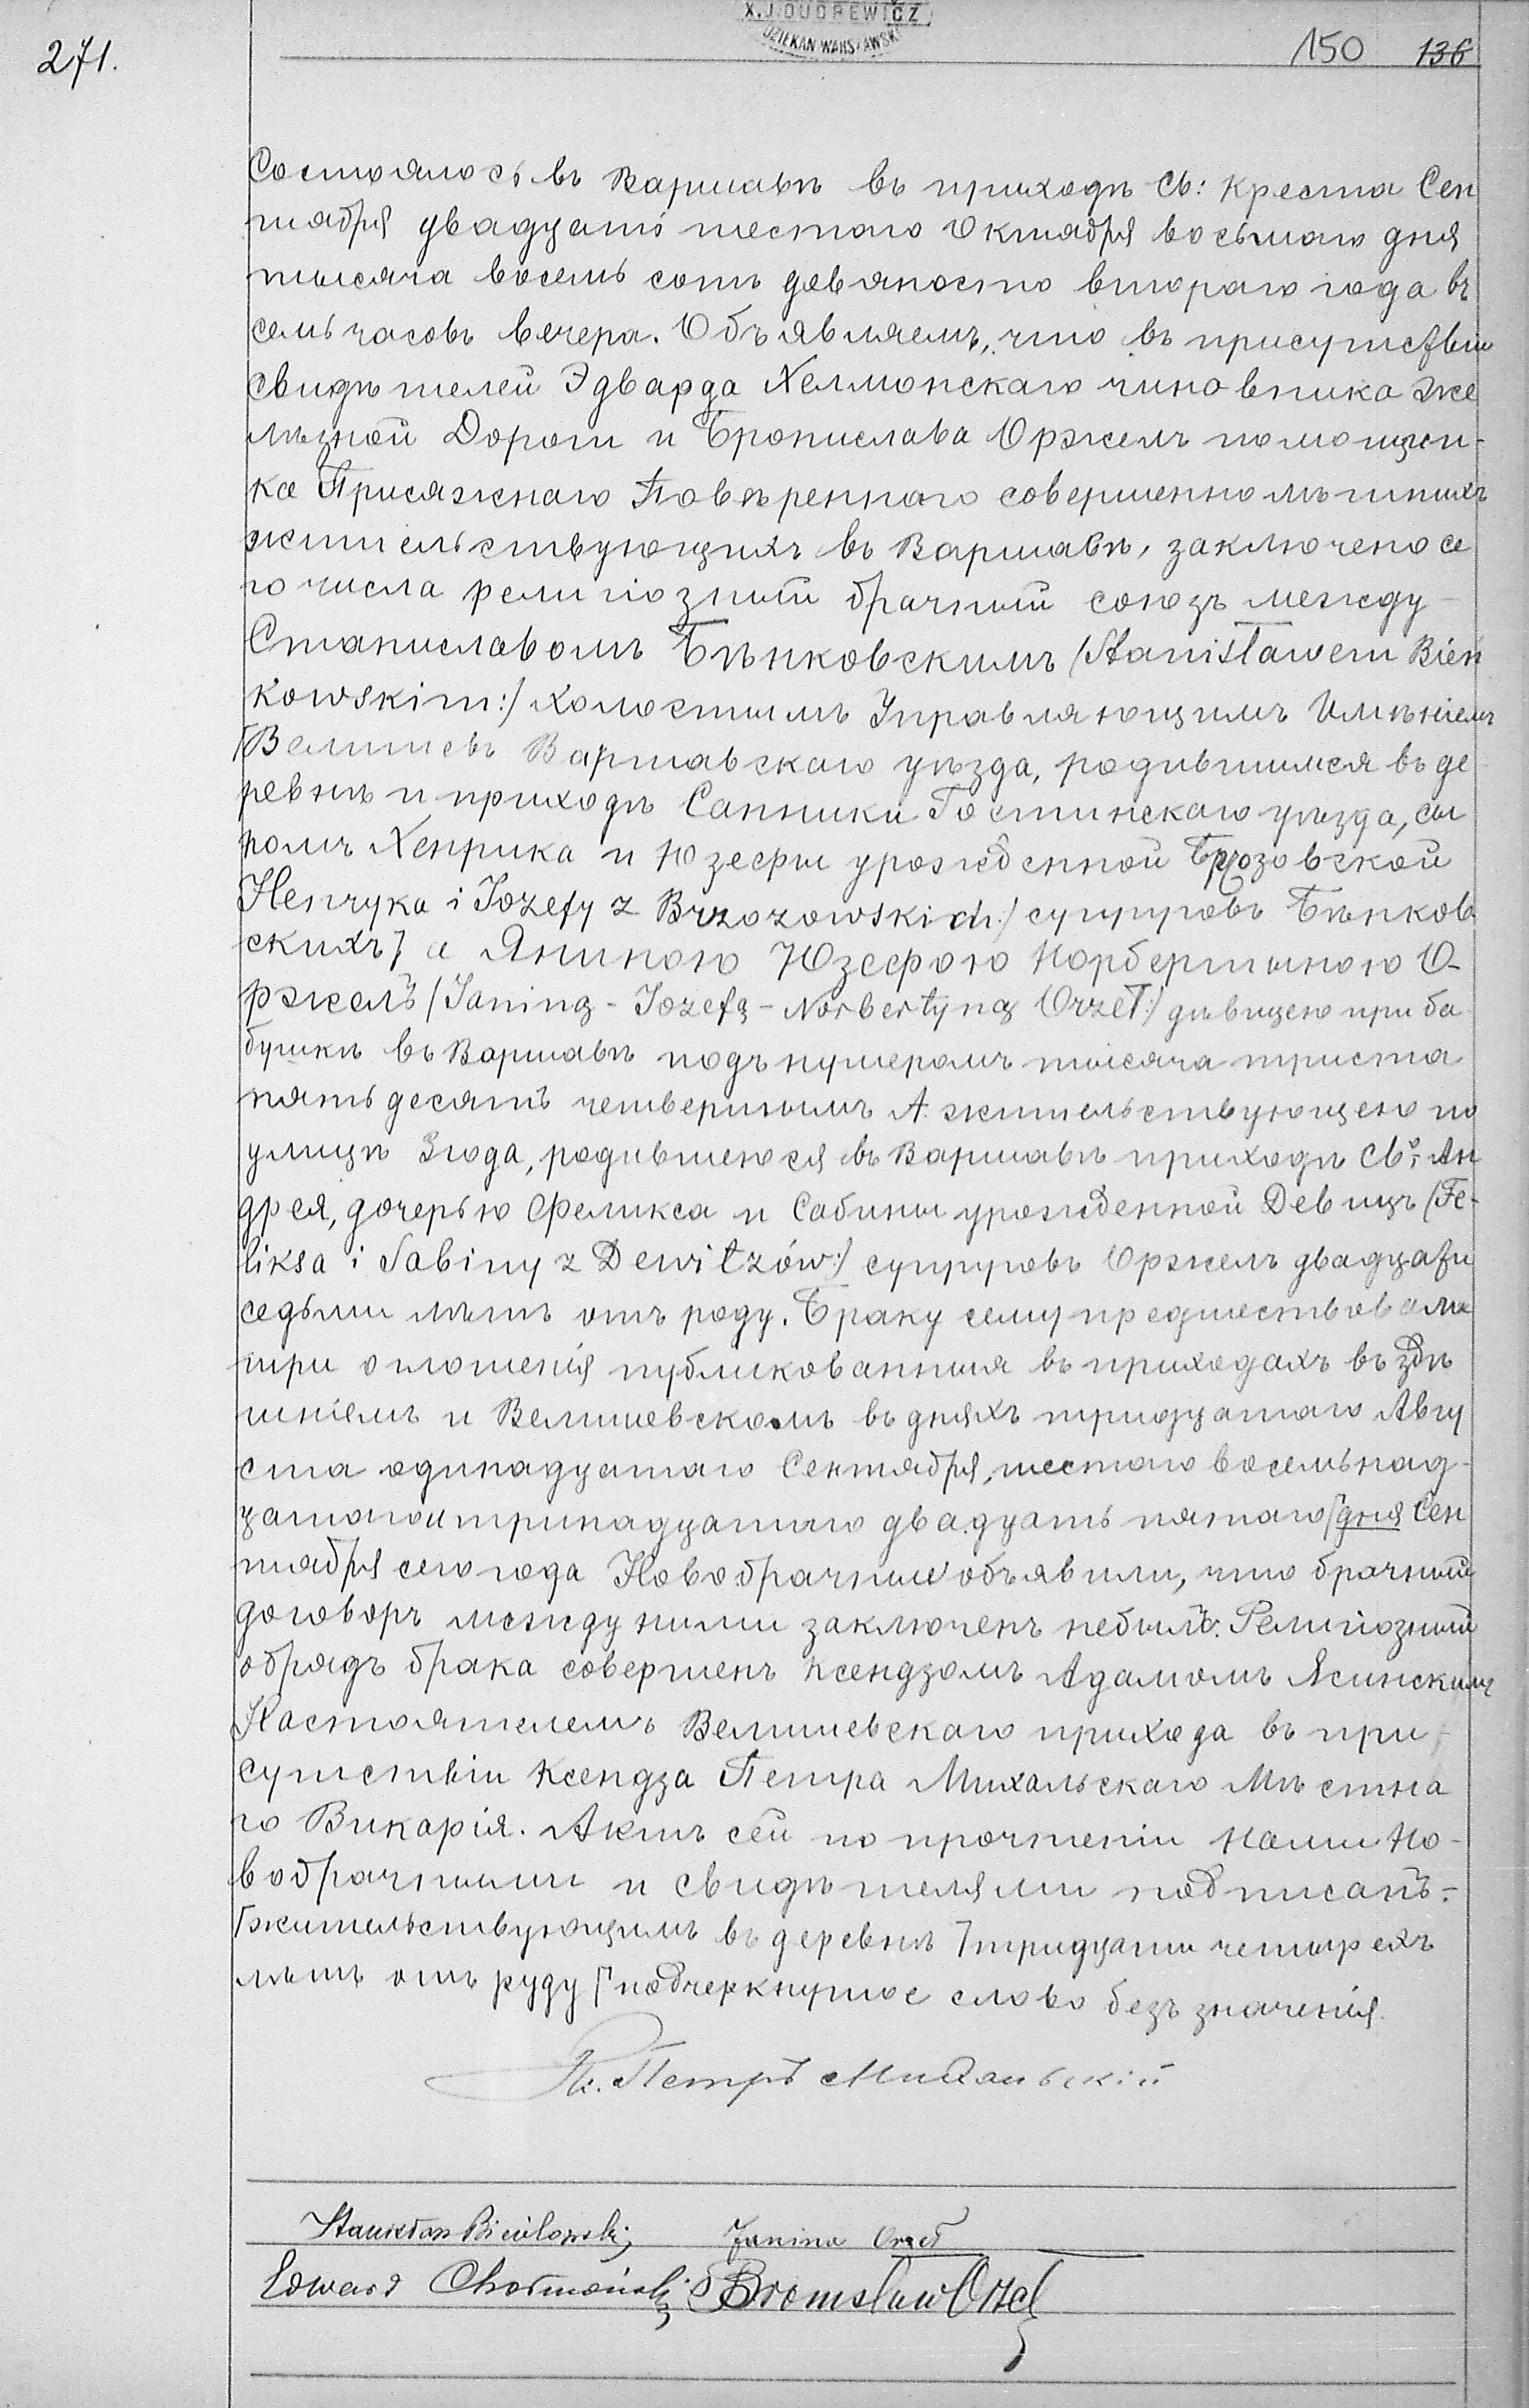 X. J. DUDREWICZ
DZIEKAN WARSZAWSKI
271.
150 136
Состоялось въ Варшавѣ въ приходѣ Св: Креста Сен
тября двадцать шестаго Октября восьмаго дня
тысяча восемь сотъ девяносто втораго года въ
семь часовъ вечера. Объявляемъ, что въ присутствіи
свидѣтелей Эдварда Хелмонскаго чиновника Же
лѣзной Дороги и Бронислава Оржелъ помощни-
ка Присяжнаго Повѣреннаго совершеннолѣтнихъ
жительствующихъ въ Варшавѣ, заключено се
го числа религіозный брачный союзъ между
Станиславомъ Бѣнковскимъ (Stanisławem Bień
kowskim:) холостымъ Управляющимъ Имѣніемъ
[Велишевъ Варшавскаго уѣзда, родившимся въ де
ревнѣ и приходѣ Санники Гостинскаго уѣзда, сы
номъ Хенрика и Юзефы урожденной Брзозовской
Henryka i Jozefy z Brzozowskich:) супруговъ Бѣнков
скихъ] а Яниною Юзефою Норбертыною О-
ржелъ (Janiną - Jozefą - Norbertyną Orzeł:) дѣвицею при ба
бушкѣ въ Варшавѣ подъ нумеромъ тысяча триста
пятьдесятъ четвертымъ А. жительствующею по
улицѣ Згода, родившеюся въ Варшавѣ приходѣ Св: Ан
дрея, дочерью Феликса и Сабины урожденной Девицъ (Fe-
liksa i Sabiny z Dewitzów:) супруговъ Оржелъ двадцати
седьми лѣтъ отъ роду. Браку сему предшествовали
три оглошенія публикованныя въ приходахъ въ здѣ
шнемъ и Велишевскомъ въ дняхъ тридцатаго Авгу
ста одинадцатаго Сентября, шестаго восемьнад-
цатаго и тринадцатаго двадцать пятаго [дня Сен
тября сего года Новобрачные объявили, что брачный
договоръ между ними заключенъ небылъ. Религіозный
обрядъ брака совершенъ Ксендзомъ Адамомъ Ясинскимъ
Настоятелемъ Велишевскаго прихода въ при
сутствіи Ксендза Петра Михальскаго Мѣстна
го Викарія. Актъ сей по прочтеніи Нами Но-
вобрачными и свидѣтелями подписанъ.-
[жительствующимъ въ деревнѣ ] тридцати четырехъ
лѣтъ отъ руду [подчеркнутое слово безъ значенія.
Кс. Петръ Михальскій
Stanisław Bieńkowski, Janina Orzeł
Edward Chełmoński Bronisław Orzeł